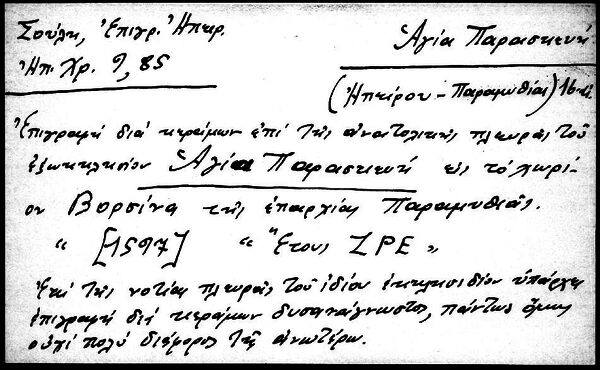 Σούλη, Ἐπιγρ. Ἠπειρ.
Ἠπ. Χρ. 9, 85
Ἁγία Παρασκευή
(Ἠπείρου - Παραμυθίας) 16 αἰ.
Ἐπιγραφή διά κεράμων ἐπί τῆς ἀνατολικῆς πλευρᾶς τοῦ
ἐξωκκλησίου Ἁγία Παρασκευή εἰς τό χωρί-
ον Βορσίνα τῆς ἐπαρχίας Παραμυθιᾶς.
" [1597] " "Ετους ΖΡΕ "
Ἐπί τῆς νοτίας πλευρᾶς τοῦ ἰδίου ἐκκλησιδίου ὑπάρχει
ἐπιγραφή διά κεράμων δυσανάγνωστος, πάντως ὅμως
οὐχί πολύ διάφορος τῆς ἀνωτέρω.